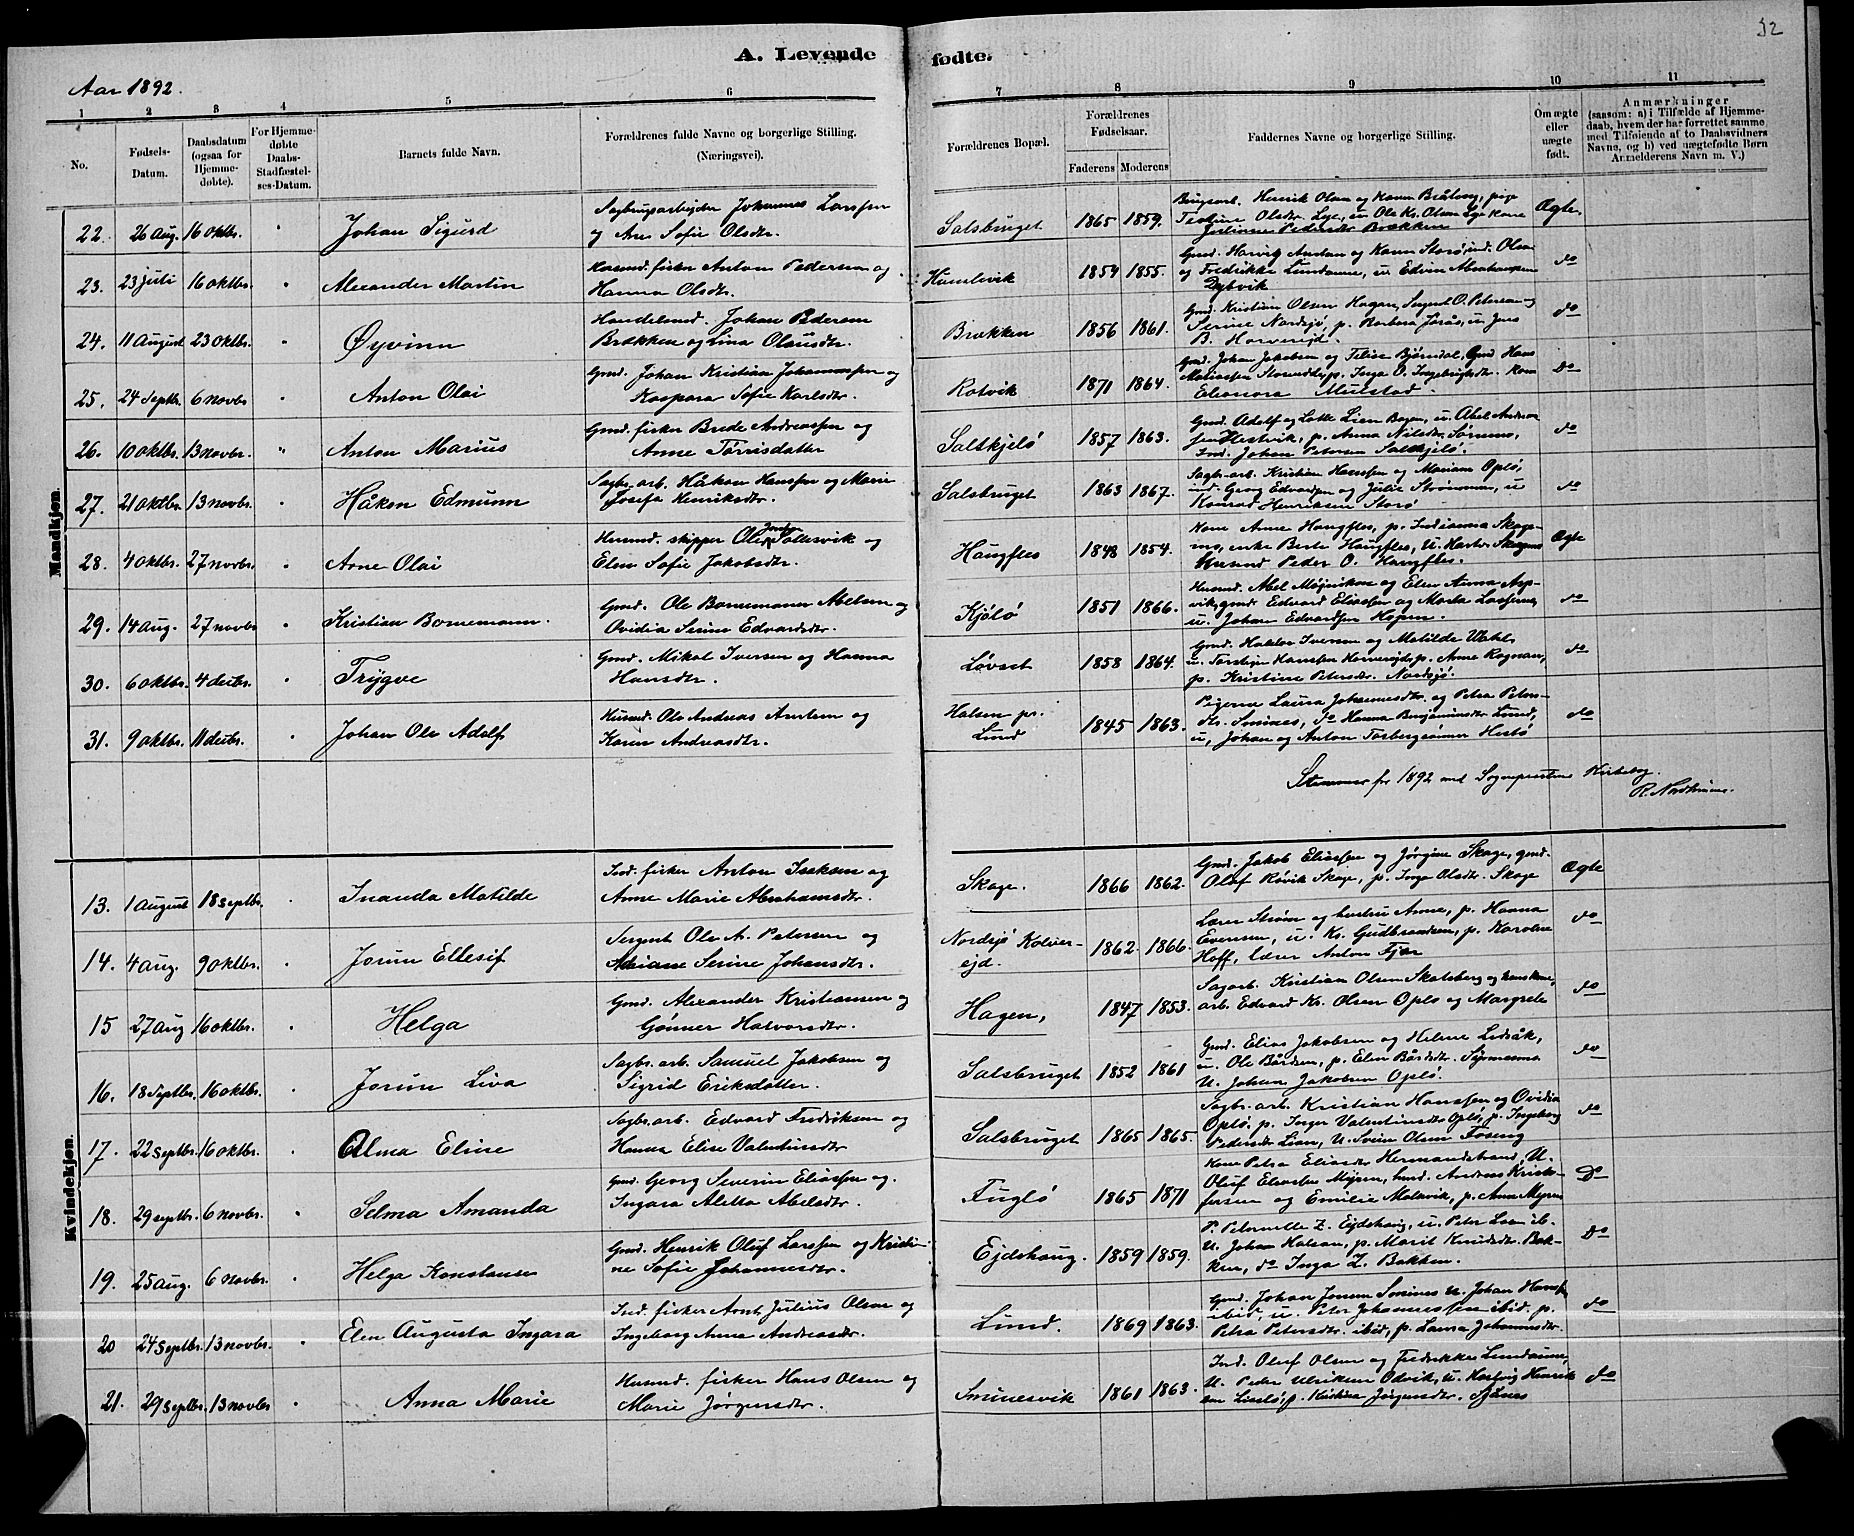 52
A. Levende fødte.
Aar 1892.
1 2 3 4 5 6 7 8 9 10 11
No.
Fødsels-Datum.
Daabsdatum (ogsaa for Hjemmedøbte).
For Hjemmedøbte Daabs-Stadfæstelses-Datum.
Barnets fulde Navn.
Forældrenes fulde Navne og borgerlige Stilling. (Næringsvei).
Forældrenes Bopæl.
Forældrenes Fødselsaar.
Faderens Moderens
Faddernes Navne og borgerlige Stilling.
Om ægte eller uægte født.
Anmærkninger
(saasom: a) i Tilfælde af Hjemmedaab, hvem der har forrettet samme med Tilføiende af to Daabsvidners Navne, og b) ved uægtefødte Børn Anmelderens Navn m. V.)
Mandkjøn.
22. 26 Aug. 16 oktbr. " Johan Sigurd
Sagbrugsarbejder Johannes Larssen
og Ane Sofie Olsdtr.
Salsbruget 1865 1859.
Brugsarb. Henrik Olsen og Karen Bråteng, pige
Olsdtr. Lye, u. Ole Kr. Olsen Lye kone
Juliane Pedersdtr Brækken
Ægte
23. 23 juli 16 oktbr. " Alexander Martin
Husmd. fisker Anton Pedersen og
Hanna Olsdtr.
Hamlevik 1854 1855.
og Fredrikke Lundamne, u. Edvin Abrahamsen
Dybvik
do
24. 11 August 23 oktbr. " Øyvinn
Handelsmd. Johan Pedersen
Brækken og Lina Olausdtr.
Brækken 1856 1861.
Gmd. Kristian Olsen Hagan, Sergent O. Petersen og
Serine Nordsjø, p. Barbara Jørås, u. Jens
B. Horvereid.
do
25. 24 Septbr. 6 novbr " Anton Olai
Gmd. Johan Kristian Johannessen og
Kaspara Sofie Karlsdtr.
Rotvik 1871 1864.
Gmd. Johan Jakobsen og Bjørndal, Gmd Hans
p. Inga O. Ingebrigtsdtr. Kone
Eleonora Mulstad
Do
26. 10 oktbr. 13 novbr. " Anton Marius
Gmd. fisker Brede Andreassen og
Anne Tørrisdatter
Saltkjelø 1857 1863.
Gmd. Adolf og Lotte Lien Bogen, u. Abel Andreas
sen Hestvik, p. Anna Nilsdtr. Sørum,
Ind. Johan Petersen Saltkjelø.
do
27. 21 oktbr. 13 novbr. " Håken Edmunn
Sagbr. arb. Håkon Hanssen og Marie
Josefa Henriksdtr.
Salsbruget 1863 1867.
Sagbr. arb. Kristian Hanssen og Mariane Oplø,
ind. Georg Edvardsen og Julie Strømmen, u
Konrad Henriksen Storø
do
28. 4 oktbr. 27 novbr. " Arne Olai
Husmd. skipper Ole Solesvik og
Elen Sofie Jakobsdtr.
Haugfles 1848 1854.
Kone Anne Haugfles, p. Indianna Skage-
mo, enke Berte Haugfles, U. Skagmo
Husmd Peder O. Haugfles.
Ægte
29. 14 aug. 27 novbr " Kristian Bornemann.
Gmd. Ole Bornemann Abelsen og
Ovidia Serine Edvardsdtr.
Kjølø 1851 1866.
Husmd. Abel og Elen Anna Asp-
vik, gmd. Edvard Eliassen og Marta
u. Johan Edvardsen Hopen.
do
30. 6 oktbr. 4 decbr. " Trygve
Gmd. Mikal Iversen og Hanna
Hansdtr.
Løvset 1858 1864.
Gmd. Iversen og Matilde
u. Torstein Hanssen p. Anne Rognan,
p. Kristine Petersdtr. Nordsjø.
do
31. 9 oktbr. 11 decbr. " Johan Ole Adolf
Husmd. Ole Andreas Arntsen og
Karen Andreasdtr.
Halsen pr. Lund 1845 1863.
Pigerne Laura Johannesdtr. og Petra Peters-
dtr. Sminnes, do Hanna Benjaminsdtr Lund,
u, Johan og Anton Hestø
do
Stemmer for 1892 med Sognepræstens Kirkebog.
R.
Kvindekjøn.
13. 1 August 18 septbr. " Inanda Matilde
Ind. fisker Anton Isaksen og
Anne Marie Abrahamsdtr.
Skage. 1866 1862.
Gmd. Jakob Eliassen og Jørgine Skage, gmd.
Olaf Røvik Skage, p. Inga Olsdtr. Skage
Ægte
14. 4 aug. 9 oktbr. " Jorun Ellesif
Sergent Ole A. Petersen og
Adriane Serine Johansdtr.
Nordsjø Kolver-
ejd. 1862. 1866.
Lærer Strøm og hustru Anne, p. Hanna
Evensen, u. Kr. Gudbrandsen, p. Karoline
Hoff, lærer Anton Fjær
do
15 27 Aug 16 oktbr. " Helga
Gmd. Alexander Kristiansen og
Gønner Halvorsdtr.
Hagen, 1847 1853.
Sagarb. Kristian Olsen Skatsberg og hans kone,
arb. Edvard Kr. Olsen Oplo og Margrete
do
16. 18 Septbr. 16 oktbr. " Jorun Liva
Sagbr. arb. Samuel Jakobsen og
Sigrid Eriksdatter.
Salsbruget 1852 1861
Gmd. Elias Jakobsen og Helene Lidsåk,
u. Ole Bårdsen, p. Elen Bårdsdtr.
U. Johan Jakobsen Oplø.
do
17. 22 septbr. 16 oktbr. " Alma Eline
Sagbr. arb. Edvard Fredriksen og
Hanna Elise Valentinsdtr
Salsbruget 1865 1865.
Sagbr. arb. Kristian Hanssen og Ovidia
Oplø, p. Inger Valentinsdtr Oplø, p. Ingeborg
Pedersdtr Lian, U. Svein Olsen Foseng
do
18. 29 septbr. 6 novbr. " Selma Amanda
Gmd. Georg Severin Eliassen og
Ingara Aletta Abelsdtr.
Fuglø 1865 1871
Kone Petra Eliasdtr Hermandstrand, U.
Oluf Eliassen Myren, hmd. Andreas Kristo-
fersen og Emilie Malavik, p. Anna Myren
Do
19. 25 aug. 6 novbr. " Helga Konstanse
Gmd. Henrik Oluf Larssen og Kristi-
ne Sofie Johannesdtr.
Ejdshaug. 1859 1859.
P. Petronelle Z. Ejdshaug, u. Peter Loen ib.
U. Johan Halsen, p. Marit Knudsdtr. Bak-
ken, do Inga Z. Bakken.
Do
20 24 septbr. 13 novbr. " Elen Augusta Ingara
Ind. fisker Arnt Julius Olsen og
Ingeborg Anna Andreasdtr.
Lund. 1869 1863.
Gmd. Johan Jonsen Sminnes u. Johan Hanss.
ibid, u. Peter Johannessen ibid. p.
Petra Petersdtr. ibid, p. Laura Johannesdtr.
do
21. 29 septbr. 13 novbr " Anna Marie
Husmd. fisker Hans Olsen og
Marie Jørgensdtr.
Sminesvik 1861 1863.
Ind. Oluf Olsen og Fredrikke Lundamne,
U. Peder Ulriksen Odvik, u. Hartvig Henrik
sen p. Kristina Jørgensdtr.
do